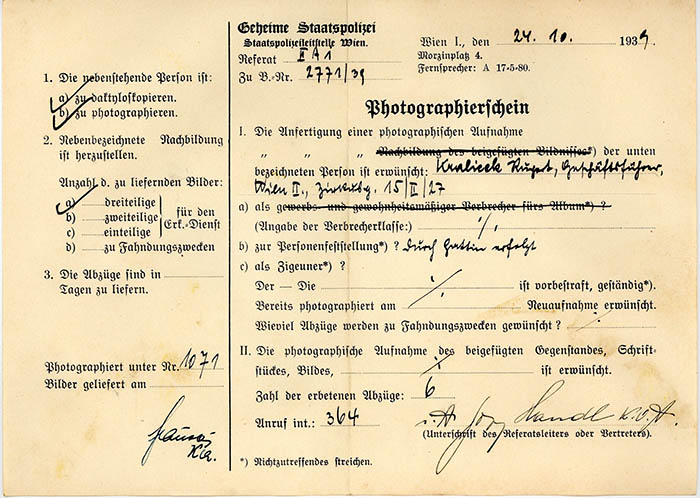 Geheime Staatspolizei
Staatspolizeileitstelle Wien.
Referat II A 1
Zu B.-Nr. 2771/39
Wien I., den 24. 10. 1939.
Morzinplatz 4.
Fernsprecher: A 17-5-80.
1. Die nebenstehende Person ist:
a) zu daktyloskopieren.
b) zu photographieren.
2. Nebenbezeichnete Nachbildung
ist herzustellen.
Anzahl d. zu liefernden Bilder:
a) dreiteilige
b) zweiteilige
c) einteilige
d) zu Fahndungszwecken
für den
Erk.-Dienst
3. Die Abzüge sind in
Tagen zu liefern.
Photographiert unter Nr. 1071
Bilder geliefert am
Photographierschein
I. Die Anfertigung einer photographischen Aufnahme
" " Nachbildung des beigefügten Bildnisses*) der unten
bezeichneten Person ist erwünscht: Geschäftsführer,
Wien II., 15/II/27
a) als gewerbs- und gewohnheitsmäßiger Verbrecher fürs Album*) ?
(Angabe der Verbrecherklasse:)
b) zur Personenfeststellung*) ? durch Gattin erfolgt
c) als Zigeuner*) ?
Der – Die ist vorbestraft, geständig*).
Bereits photographiert am Neuaufnahme erwünscht.
Wieviel Abzüge werden zu Fahndungszwecken gewünscht ?
II. Die photographische Aufnahme des beigefügten Gegenstandes, Schrift-
stückes, Bildes, ist erwünscht.
Zahl der erbetenen Abzüge: 6
Anruf int.: 364
(Unterschrift des Referatsleiters oder Vertreters).
*) Nichtzutreffendes streichen.